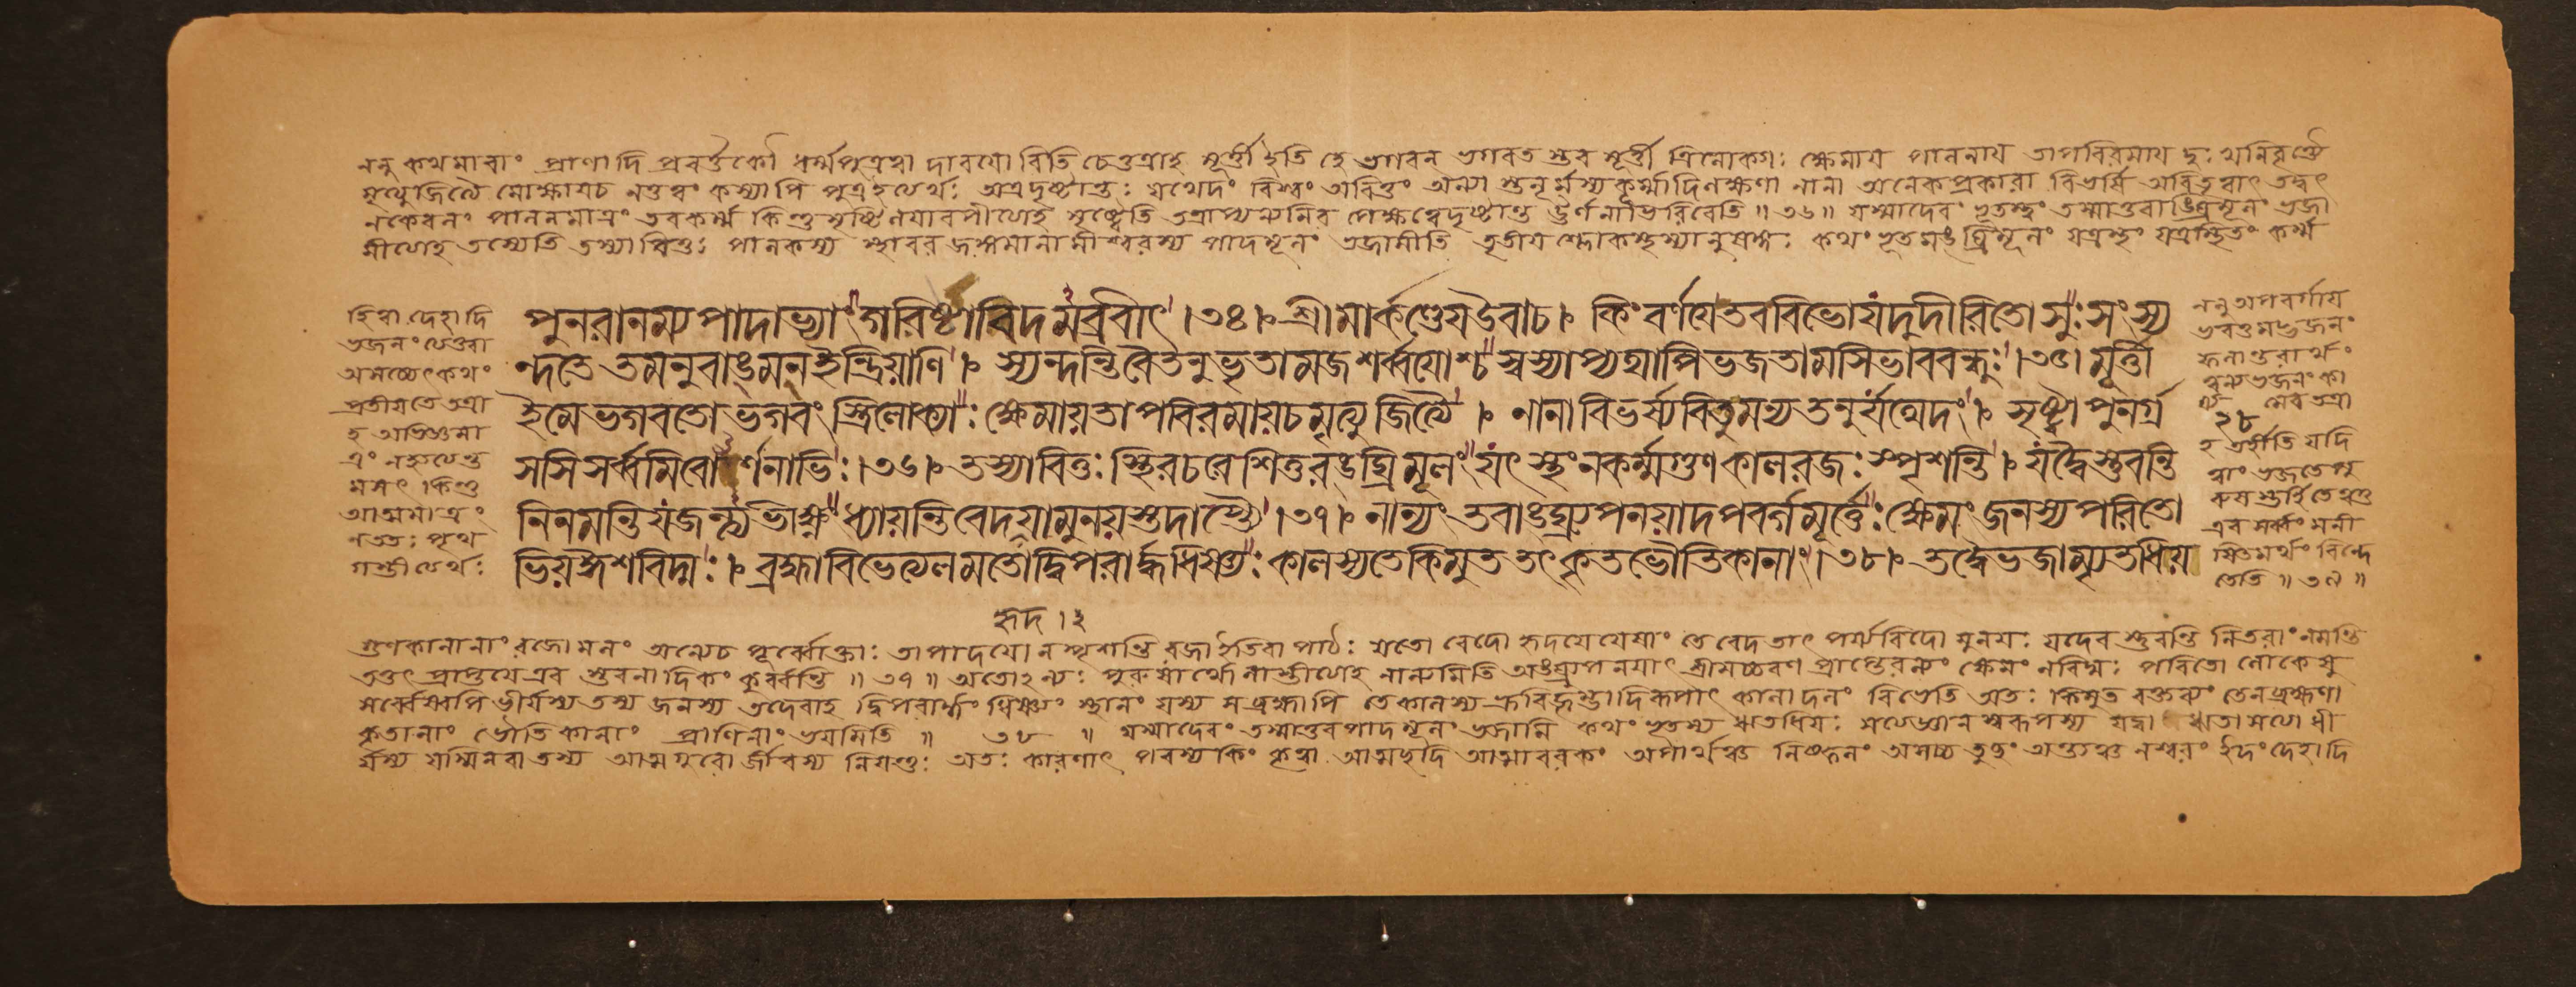 ননু কথমাবাং প্রাণাদি প্রবর্ত্তকৌ ধর্ম্মপুত্রত্বা দাবয়ো রিতি চেত্তত্রাহ মূর্ত্তী ইতি হে ভগবন ভগবত স্তব মূর্ত্তী ত্রিলোক্যাঃ ক্ষেমায় পালনায় তাপবিরমায় দুঃখনিবৃত্তৈ
মৃত্যুজিত্যৈ মোক্ষায়চ নতুত্বং কস্যাপি পুত্রইত্যর্থঃ অত্রদৃষ্টান্তঃ যথেদং বিশ্বং অবিতুং অন্যা স্তনূর্মৎস্যকূর্ম্মাদিলক্ষণা নানা অনেকপ্রকারা বিভর্ষি অবিতৃত্বাৎ তদ্বৎ
নকেবলং পালনমাত্রং তবকর্ম্ম কিন্তু সৃষ্টিলয়াবপীত্যাহ সৃষ্ট্বেতি তত্রাপ্যন্যনিরপেক্ষত্বেদৃষ্টান্ত ঊর্ণনাভিরিবেতি ॥৩৬॥ যস্মাদেবং ভূতস্ত্বং তস্মাত্তবাঙ্ঘ্রিমূলং ভজা
মীত্যাহ তস্যেতি তস্যাবিতুঃ পালকস্য স্থাবরজঙ্গমানামীশ্বরস্য পাদমূলং ভজামীতি তৃতীয়শ্লোকস্থস্যানুষঙ্গঃ কথংভূতমঙ্ঘ্রিমূলং যত্রস্থং যত্রস্থিতং কর্ম্ম
হিত্বা দেহাদি
ভজনংত্যেত্তবা
প্রতীয়তে তত্রা
আত্মমাত্রং
ততঃ পৃথ
গস্তীত্যর্থঃ
পুনরানম্য পাদাভ্যাং গরিষ্ঠাবিদমব্রবীৎ।৩৪। শ্রীমার্কণ্ডেয়উবাচ। কিংবর্ণয়েতববিভোযদুদীরিতোসুঃসংস্য
ন্দতে তমনুবাঙ্মনইন্দ্রিয়াণি। স্যন্দন্তিবৈতনুভৃতামজশর্ব্বয়োশ্চস্বস্যাপ্যথাপিভজতামসিভাববন্ধুঃ।৩৫। মূর্ত্তী
ইমেভগবতোভগবংস্ত্রিলোক্যাঃ ক্ষেমায়তাপবিরমায়চমৃত্যুজিত্যৈ। নানাবিভর্ষ্যবিতুমন্যতনূর্যথেদং। সৃষ্ট্বাপুনর্গ্র
সসিসর্ব্বমিবোর্ণনাভিঃ।৩৬। তস্যাবিতুঃস্থিরচরেশিতুরঙ্ঘ্রিমূলং যৎস্থংনকর্ম্মগুণকালরজঃস্পৃশন্তি। যদ্বৈস্তুবন্তি
নিনমন্তিযজন্ত্যভীক্ষ্ণং ধ্যায়ন্তিবেদহৃদয়ামুনয়স্তদাপ্ত্যৈ।৩৭। নান্যংতবাঙ্ঘ্র্যুপনয়াদপবর্গমূর্ত্তেঃক্ষেমংজনস্যপরিতো
ভিয়ঈশবিদ্মঃ। ব্রহ্মাবিভেত্যলমতোদ্বিপরার্দ্ধধিষ্ণ্যঃকালস্যতেকিমুততৎকৃতভৌতিকানাং।৩৮। তদ্বৈভজাম্যৃতধিয়
ননু অপবর্গায়
ফলান্তরার্থং
২৮
হ তর্হীতি যদি
ত্বাং ভজতে
এব সর্ব্বং মনী
ষিতমর্থং বিন্দে
তেতি ॥৩৯॥
হৃদ।২
গুণকালানাং রজোমলং অন্যেচ পূর্ব্বোক্তাঃ তাপাদয়োনস্পৃশন্তি রুজাইতিবা পাঠঃ যতো বেদো হৃদয়েযেষাং তে বেদতাৎ পর্য্যবিদো মুনয়ঃ যদেব স্তুবন্তি নিতরাং নমন্তি
তত্তৎ প্রাপ্তয়েএব স্তবনাদিকং কুর্ব্বন্তি ॥৩৭॥ অতোঽন্যঃ পুরুষার্থো নাস্তীত্যাহ নান্যমিতি অঙ্ঘ্র্যুপনয়াৎ শ্রীমচ্চরণ প্রাপ্তেরন্যং ক্ষেমং নবিদ্মঃ পরিতো লোকেষু
সর্ব্বেষ্বপি ভীর্যস্য তস্য জনস্য তদেবাহ দ্বিপরার্দ্ধং ধিষ্ণ্যং স্থানং যস্য সব্রহ্মাপি তেকালস্য ভ্রূবিজৃম্ভাদিরূপাৎ কালাদলং বিভেতি অতঃ কিমুত বক্তব্যং তেনব্রহ্মণা
কৃতানাং ভৌতিকানাং প্রাণিনাং ভয়মিতি ॥ ৩৮ ॥ যস্মাদেবং তস্মাত্তবপাদমূলং ভজামি কথং ভূতস্য ঋতধিয়ঃ সত্যজ্ঞানস্বরূপস্য যদ্বা ঋতা সত্যেধী
র্যস্য যস্মিনবাতস্য আত্মগুরো র্জীবস্য নিয়ন্তুঃ অতঃ কারণাৎ পরস্যকিং কৃত্বা আত্মছদি আত্মাবরকং অপার্থঞ্চ নিষ্ফলং অসচ্চ তুচ্ছং অন্ত্যঞ্চ নশ্বরং ইদং দেহাদি